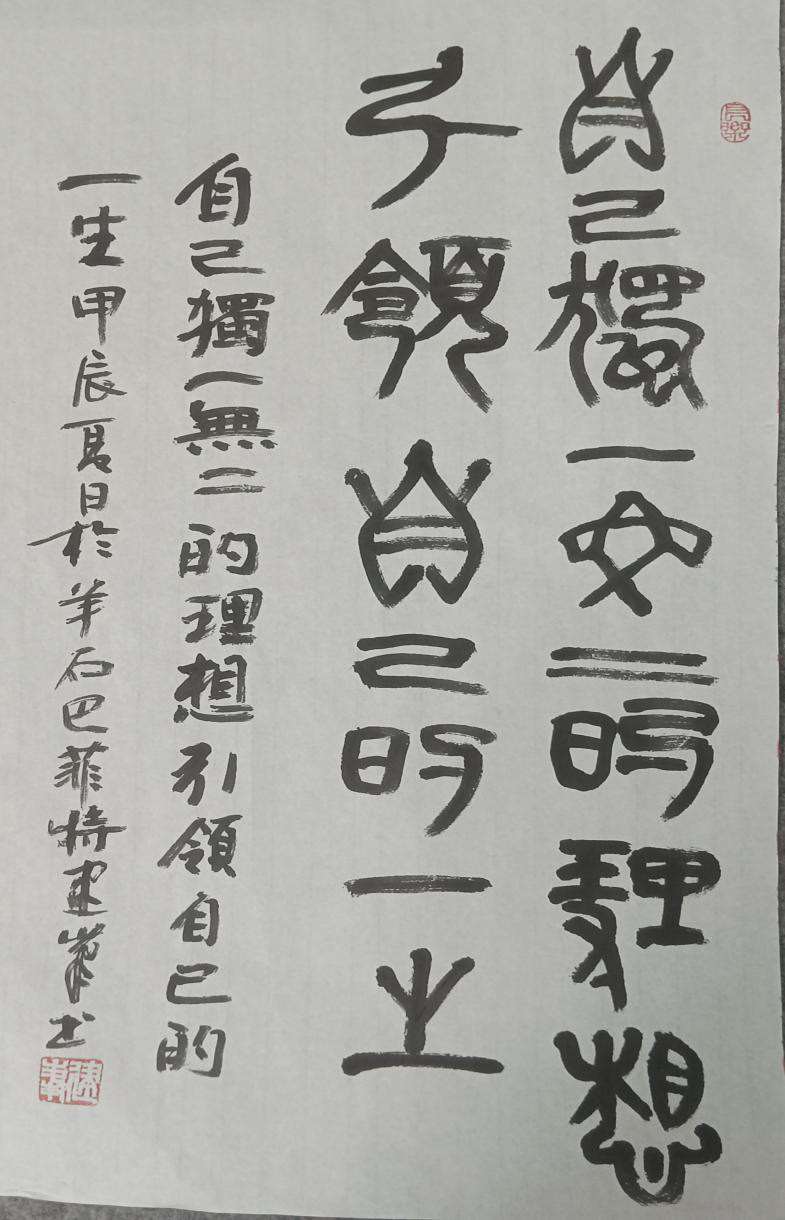 自己獨一無二的理想
引領自己的一生
自己獨一無二的理想引領自己的
一生甲辰夏日於羊石巴菲特建峯书